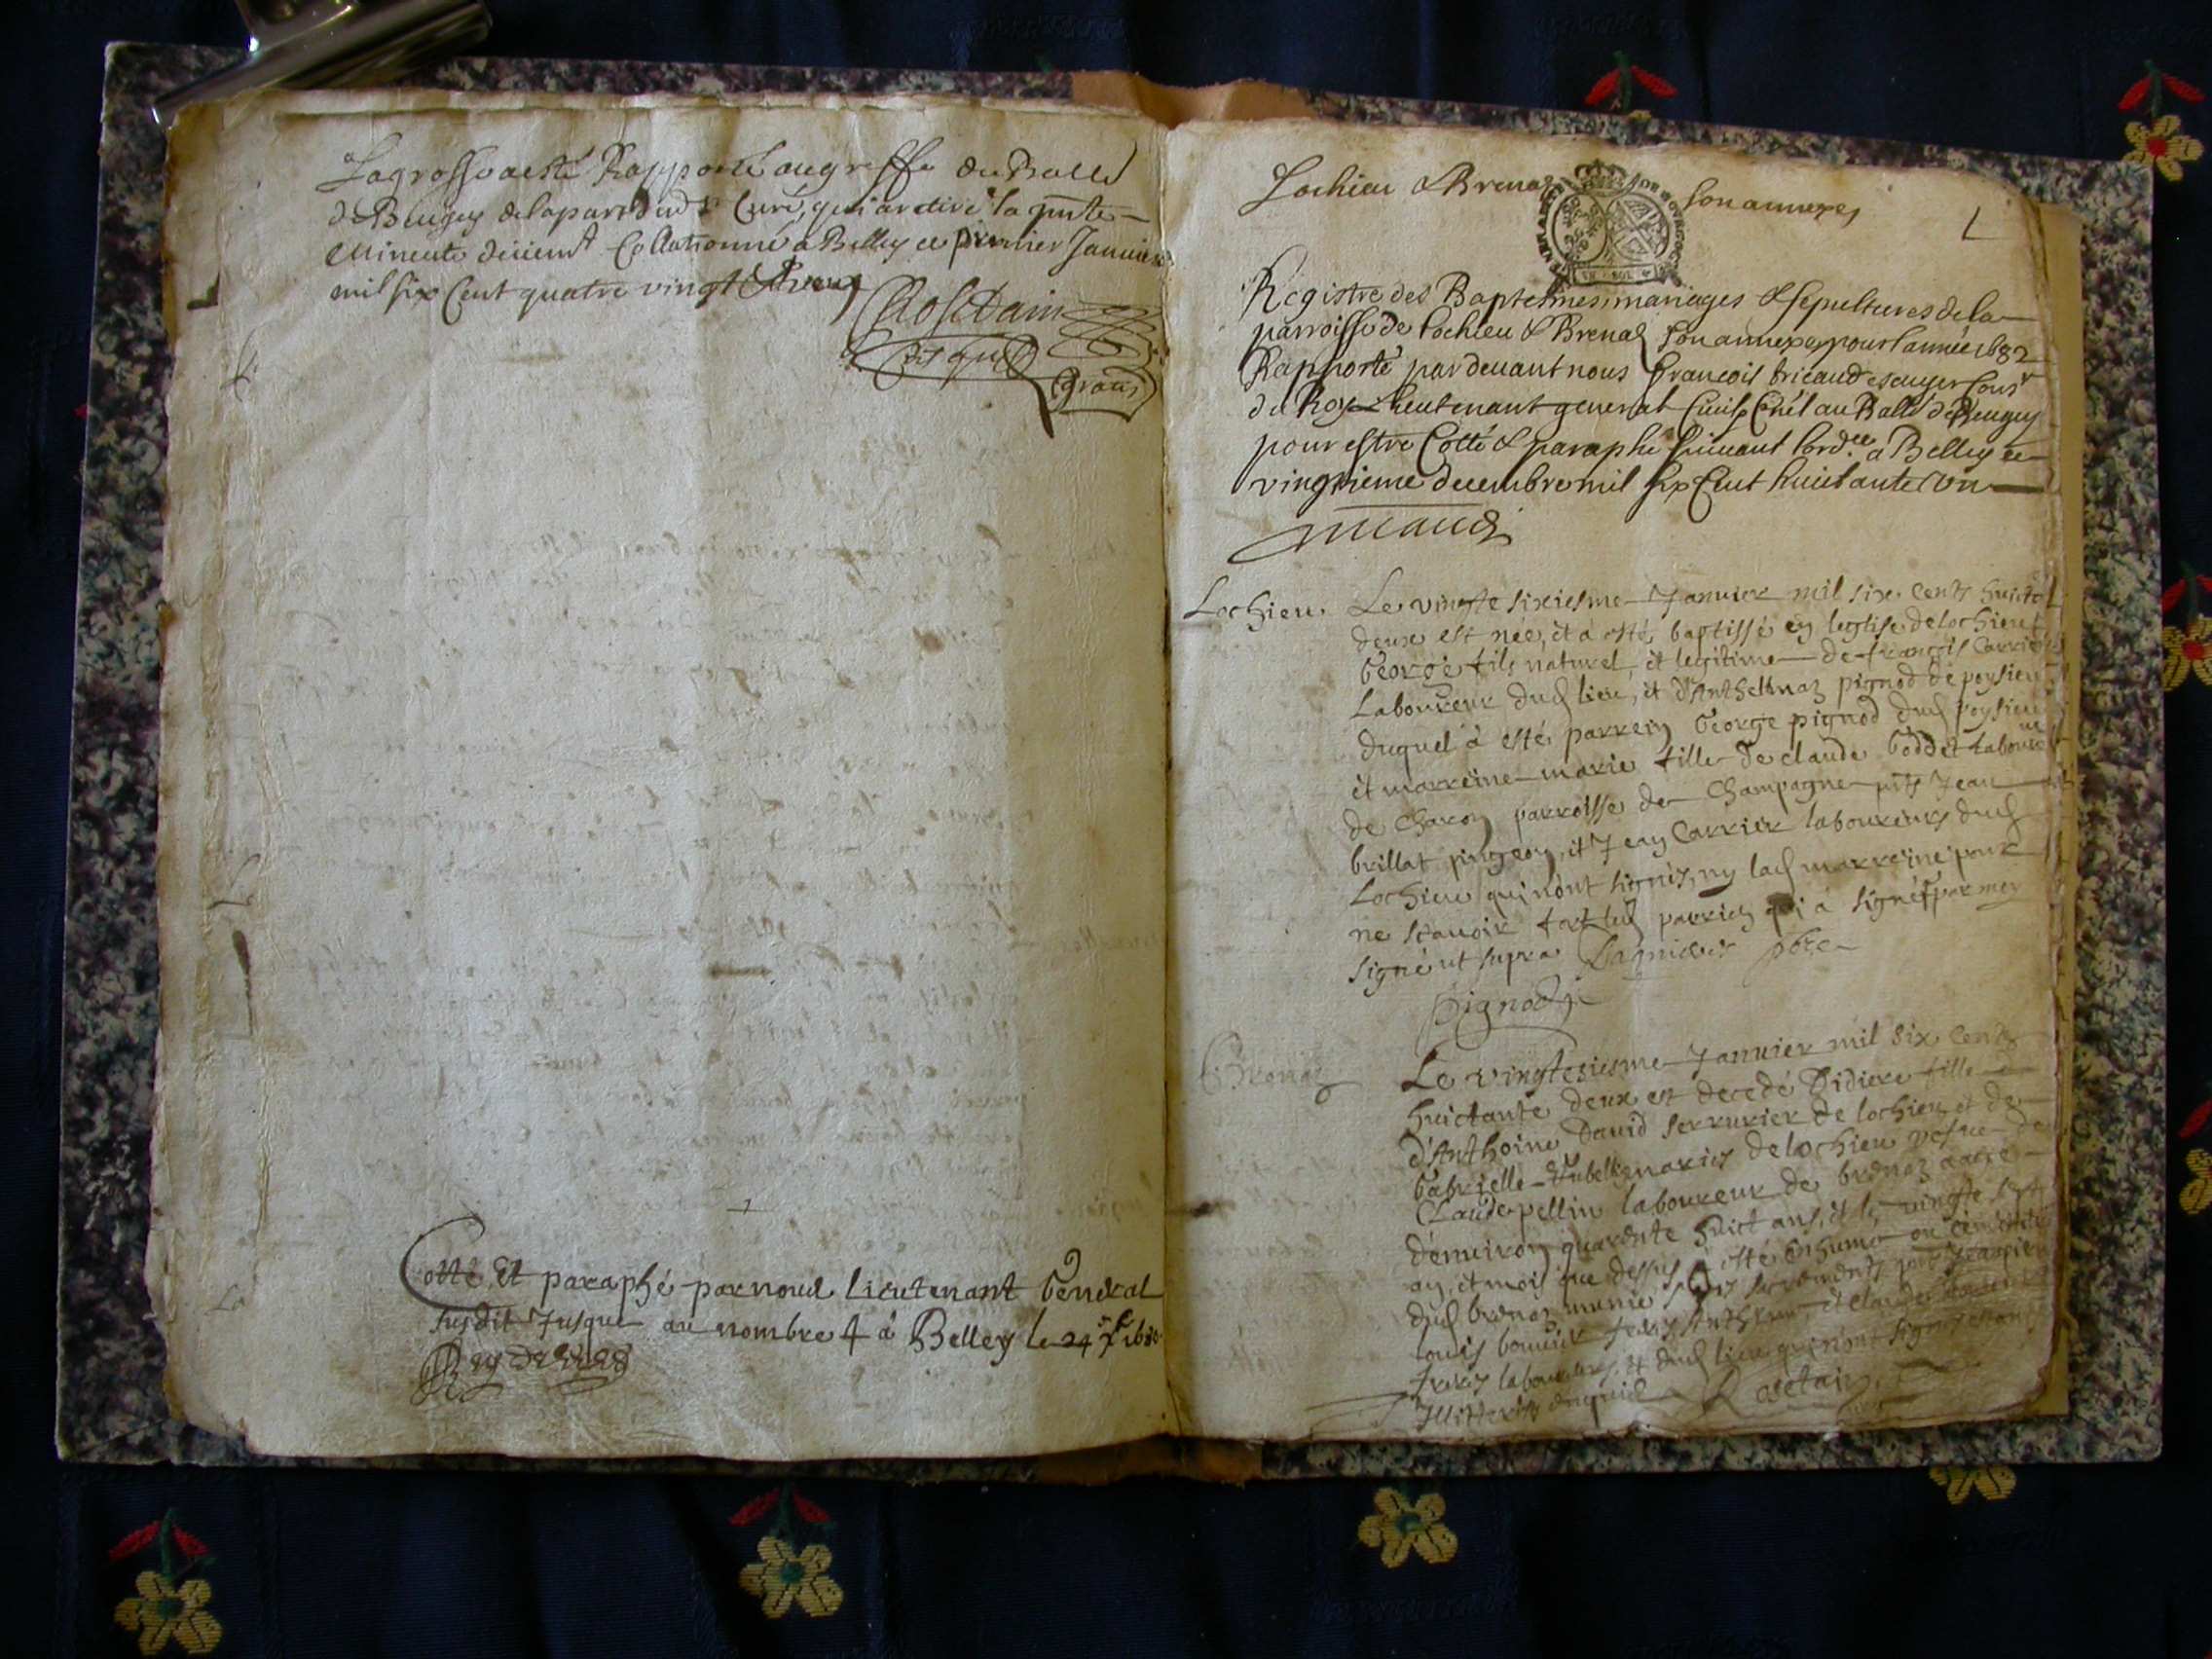 La grosse a esté Rapporté au greffe du Balle
de Beugey de la part dud Sr Curé, qui a retiré la pnte
Minente duement Collationné a Belley ce premier Janvier
mil six Cent quatre vingt
Rosetain
Cotté Et paraphé par nous Lieutenant General
susdit Jusques au nombre 4 à Belley le 24
Lochieu & Brenaz son annexes
Registre des Baptesmes, mariages & sepultures de la
parroisse de Lochieu & Brenaz son annexes pour l'année 1682
Rapporté par devant nous François bricaud escuyer Consr
du Roy Lieutenant general Civil & Crîel au Balle de Beugey
pour estre Cotté & paraphé suivant l'ordce a Belley ce
vingtieme decembre mil six Cent huictante Un
Lochieu. Le vingte sixiesme Janvier mil six cents huicta
deux est née, et a esté baptissé en leglise de lochieu
George fils naturel et legitime de françois Carrier
Laboureur dud lieu, et d'Anthelmaz pignod de poysieu
duquel à esté parrein George pignod dud poysieu
et marreine marie fille de claude Goddet Laboureur
de Charon parroisse de Champagne pnts Jean
brillat pingeon, et Jean Carrier laboureurs dud
Lochieu qui n'ont signés, ny lad marreine pour
ne scavoir fort led parrien qui à signé par moy
signé ut supra ptre
pignod
Brenaz Le vingtesiesme Janvier mil six cents
huictante deux est decedé Didiere fille
d'Anthoine David serrurier de lochieu et de
Gabrielle mariés de lochieu vefue de
Claude pellin laboureur de brenaz agée
d'enuiron quarente huict ans, et le vingte sept
an, et mois que dessus a esté enhumé au cimetiere
dud brenaz munie de ses sacrements pnts
louis bouvier et claude
freres laboureurs dud lieu qui n'ont signés estant
Illitterés enquis Rosetain